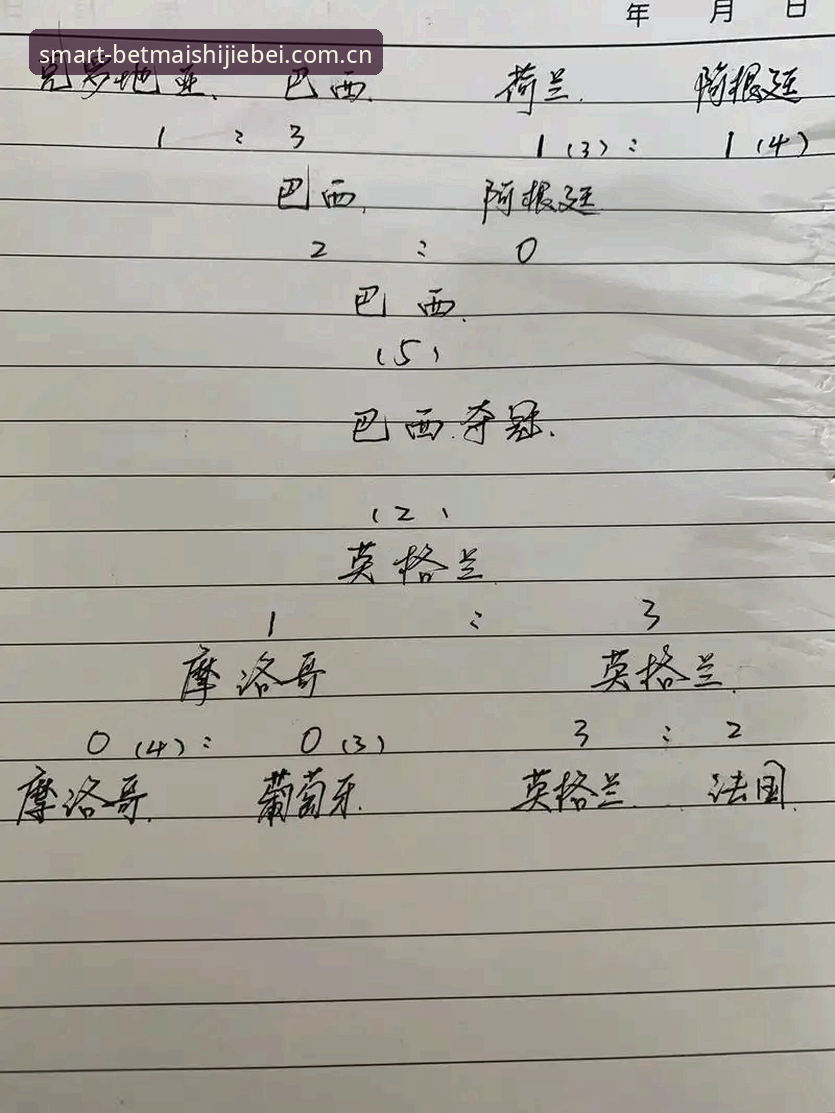 年 月 日
smart-betmaishijiebei.com.cn
克罗地亚. 巴西. 荷兰. 阿根廷
1 : 3 1(3): 1(4)
巴西. 阿根廷
2 : 0
巴西.
(5)
巴西.夺冠.
(2)
英格兰
1 : 3
摩洛哥 英格兰.
0(4): 0(3) 3 : 2
摩洛哥. 葡萄牙. 英格兰. 法国.